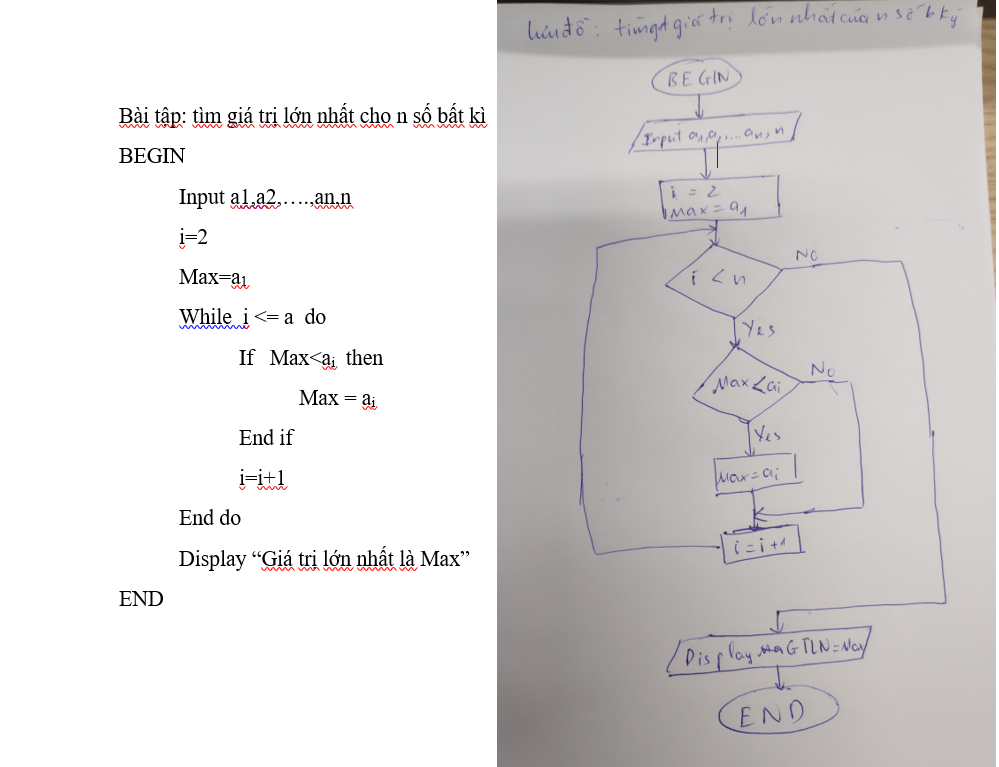 Bài tập: tìm giá trị lớn nhất cho n số bất kì
BEGIN
Input a1,a2,….,an,n
i=2
Max=a1
While i <= a do
If Max<ai then
Max = ai
End if
i=i+1
End do
Display “Giá trị lớn nhất là Max”
END
Lưu đồ: giá trị lớn nhất của n số b kỳ
BEGIN
Input a1,a2,...an, n
i = 2
Max = a1
i < n
No
Yes
Max < ai
No
Yes
Max = ai
i = i + 1
Display GTLN = Max
END